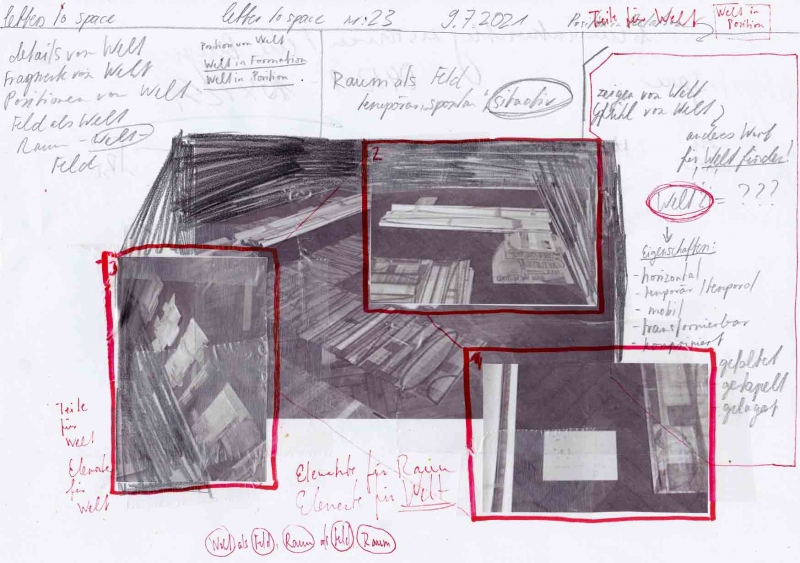 letters to space
letter to space nr. 23
9.7.2021
Teile für Welt
Welt in
Position
details von Welt
Fragmente von Welt
Positionen von Welt
Feld als Welt
Raum - Welt -
Feld
Position von Welt
Welt in Formation
Welt in Position.
Raum als Feld
temporär, spontan, situativ
zeigen von Welt
Gefühl von Welt
anderes Wort
für Welt finden!
Welt? = ???
Eigenschaften:
- horizontal
- temporär / temporal
- mobil
- transformierbar
- komprimiert
gefaltet
gestapelt
gelagert
2
3
Teile
für
Welt
Elemente
für
Welt
Elemente für Raum
Elemente für Welt
Welt als Feld, Raum als Feld Raum